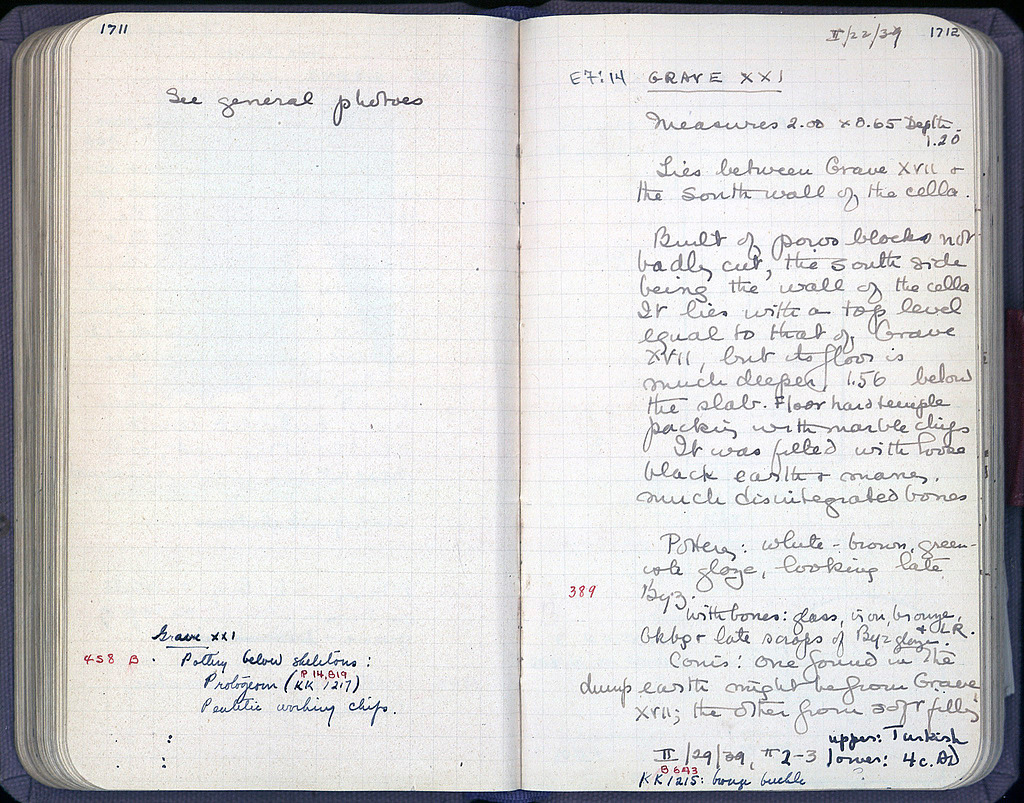 1711
See general photoes
Grave XXI
458 B. Pottery below skeletons:
P 14,819
Protogeom (KK 1217)
Pentelic working chips.
II/22/39 1712
E7:14 GRAVE XXI
Measures 2.00 x 0.65 Depth
1.20
Lies between Grave XVII +
the south wall of the cella.
Built of poros blocks not
badly cut, the south side
being the wall of the cella
It lies with a top level
equal to that of Grave
XVII, but its floor is
much deeper, 1.56 below
the slab. Floor hard temple
packing with marble chips
It was filled with loose
black earth + many,
much disintegrated bones
Pottery: white-brown, green-
ish glaze, looking late
389 Byz.
with bones: glass, iron, bronze,
bkbg + late scraps of Byz glaze + LR.
Coins: one found in the
dump earth might be from Grave
XVII; the other from soft filling
upper: Turkish
II/29/39, # 2-3 lower: 4c. AD
B 643
KK 1215: bronze buckle